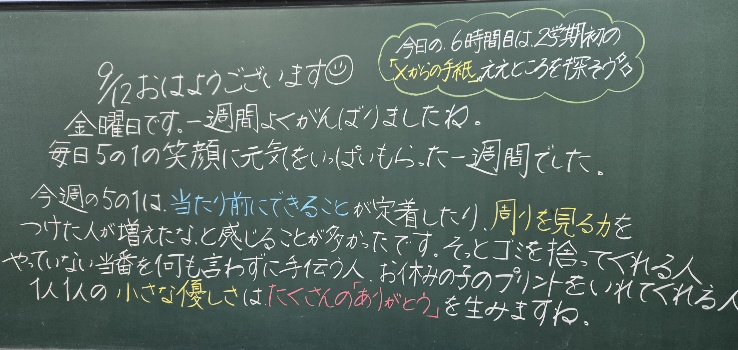 今日の、6時間目は、2学期初の
「Xからの手紙」。ええところを探そう♪
9/12 おはようございます☺
金曜日です。一週間よくがんばりましたね。
毎日5の1の笑顔に元気をいっぱいもらった一週間でした。
今週の5の1は、当たり前にできることが定着したり、周りを見る力を
つけた人が増えたな、と感じることが多かったです。そっとゴミを拾ってくれる人、
やっていない当番を何も言わずに手伝う人、お休みの子のプリントをいれてくれる人
1人1人の小さな優しさはたくさんの「ありがとう」を生みますね。